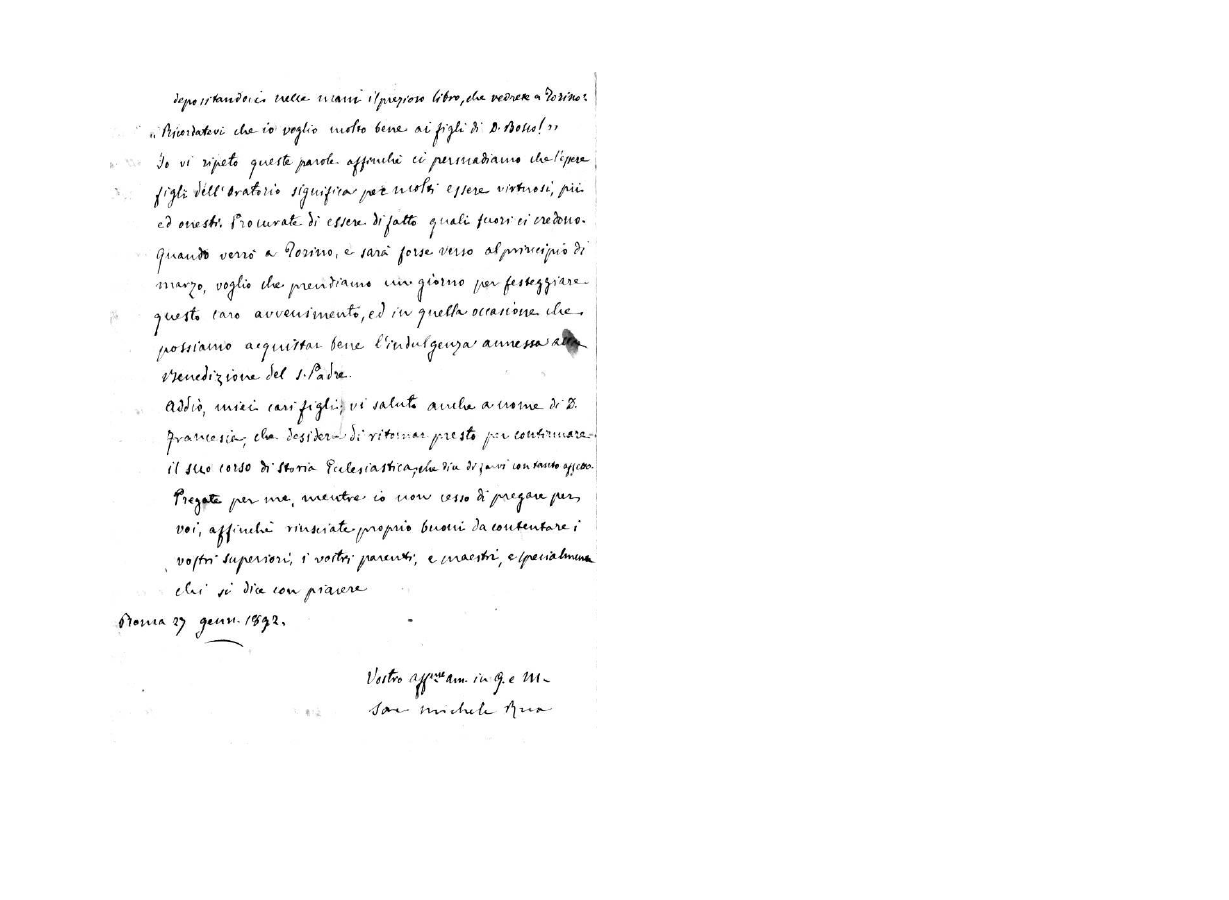 depositandoci nelle mani il prezioso libro, che vedrete a Torino:
„ Ricordatevi che io voglio molto bene ai figli di D. Bosco! „
Io vi ripeto queste parole affinchè ci persuadiamo che l'essere
figli dell'Oratorio significa per molti essere virtuosi, pii
ed onesti. Procurate di essere di fatto quali fuori ci credono.
Quando verrò a Torino, e sarà forse verso al principio di
marzo, voglio che prendiamo un giorno per festeggiare
questo caro avvenimento, ed in quella occasione che
possiamo acquistar bene l'indulgenza annessa alla
Benedizione del S. Padre.
Addio, miei cari figli; vi saluto anche a nome di D.
Francesia, che desidera di ritornar presto per continuare
il suo corso di storia Ecclesiastica, che dice di farvi con tanto affetto.
Pregate per me, mentre io non cesso di pregare per
voi, affinchè riusciate proprio buoni da contentare i
vostri superiori, i vostri parenti, e maestri, e specialmente
chi si dice con piacere
Roma 27 genn. 1892.
Vostro aff.mo am. in G. e M.
Sac Michele Rua